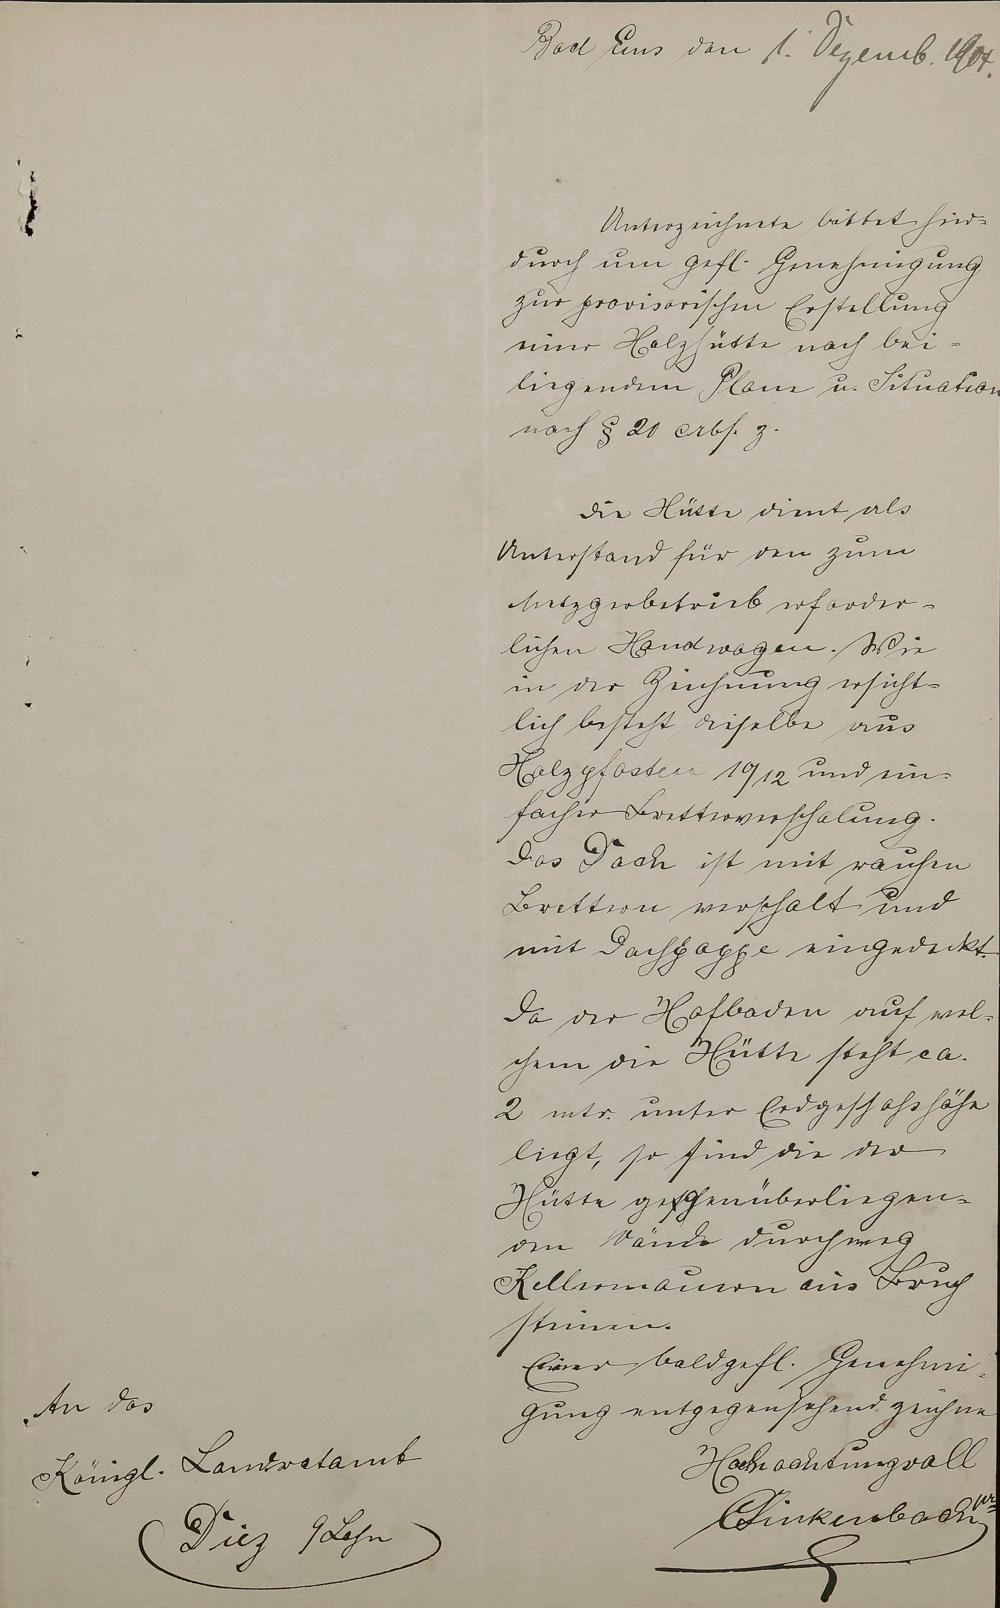 Bad Ems den 1. Dezemb. 1904.
Unterzeichnete bittet hier-
durch um gefl. Genehmigung
zur provisorischen Erstellung
einer Holzhütte nach bei-
liegendem Plane u. Situation
nach § 20 Abs. 3.
Die Hütte dient als
Unterstand für den zum
Metzgerbetrieb erforder-
lichen Handwagen. Wie
in der Zeichnung ersicht-
lich besteht dieselbe aus
Holzpfosten 10/12 und ein-
facher Bretterverschalung.
Das Dach ist mit rauhen
Brettern verschalt und
mit Dachpappe eingedeckt.
Da der Hofboden auf wel-
chem die Hütte steht ca.
2 mtr. unter Erdgeschosshöhe
liegt, so sind die der
Hütte gegenüberliegen-
den Wände durchweg
Kellermauern aus Bruch
steinen.
Einer baldgefl. Genehmi-
gung entgegensehend zeichne
Hochachtungsvoll
Linkenbach
An das
Königl. Landratamt
Diez a/Lahn